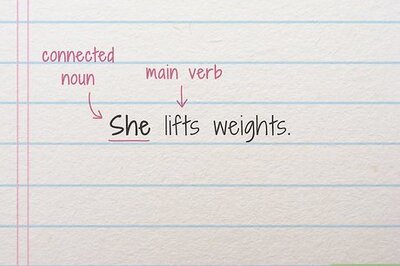 connected
noun
main verb
She lifts weights.